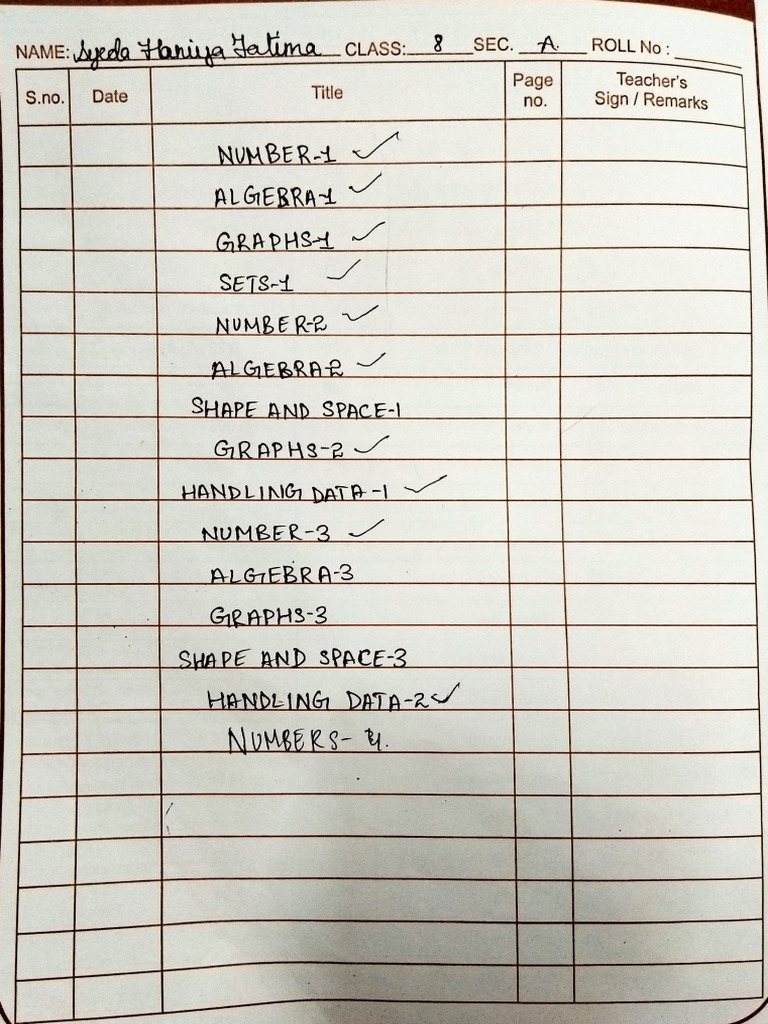 NAME: Syeda Haniya Fatima CLASS: 8 SEC. A. ROLL No :
S.no. Date Title Page no. Teacher's Sign / Remarks
NUMBER-1 ✓
ALGEBRA-1 ✓
GRAPHS-1 ✓
SETS-1 ✓
NUMBER-2 ✓
ALGEBRA-2 ✓
SHAPE AND SPACE-1
GRAPHS-2 ✓
HANDLING DATA-1 ✓
NUMBER-3 ✓
ALGEBRA-3
GRAPHS-3
SHAPE AND SPACE-3
HANDLING DATA-2 ✓
NUMBERS-4.